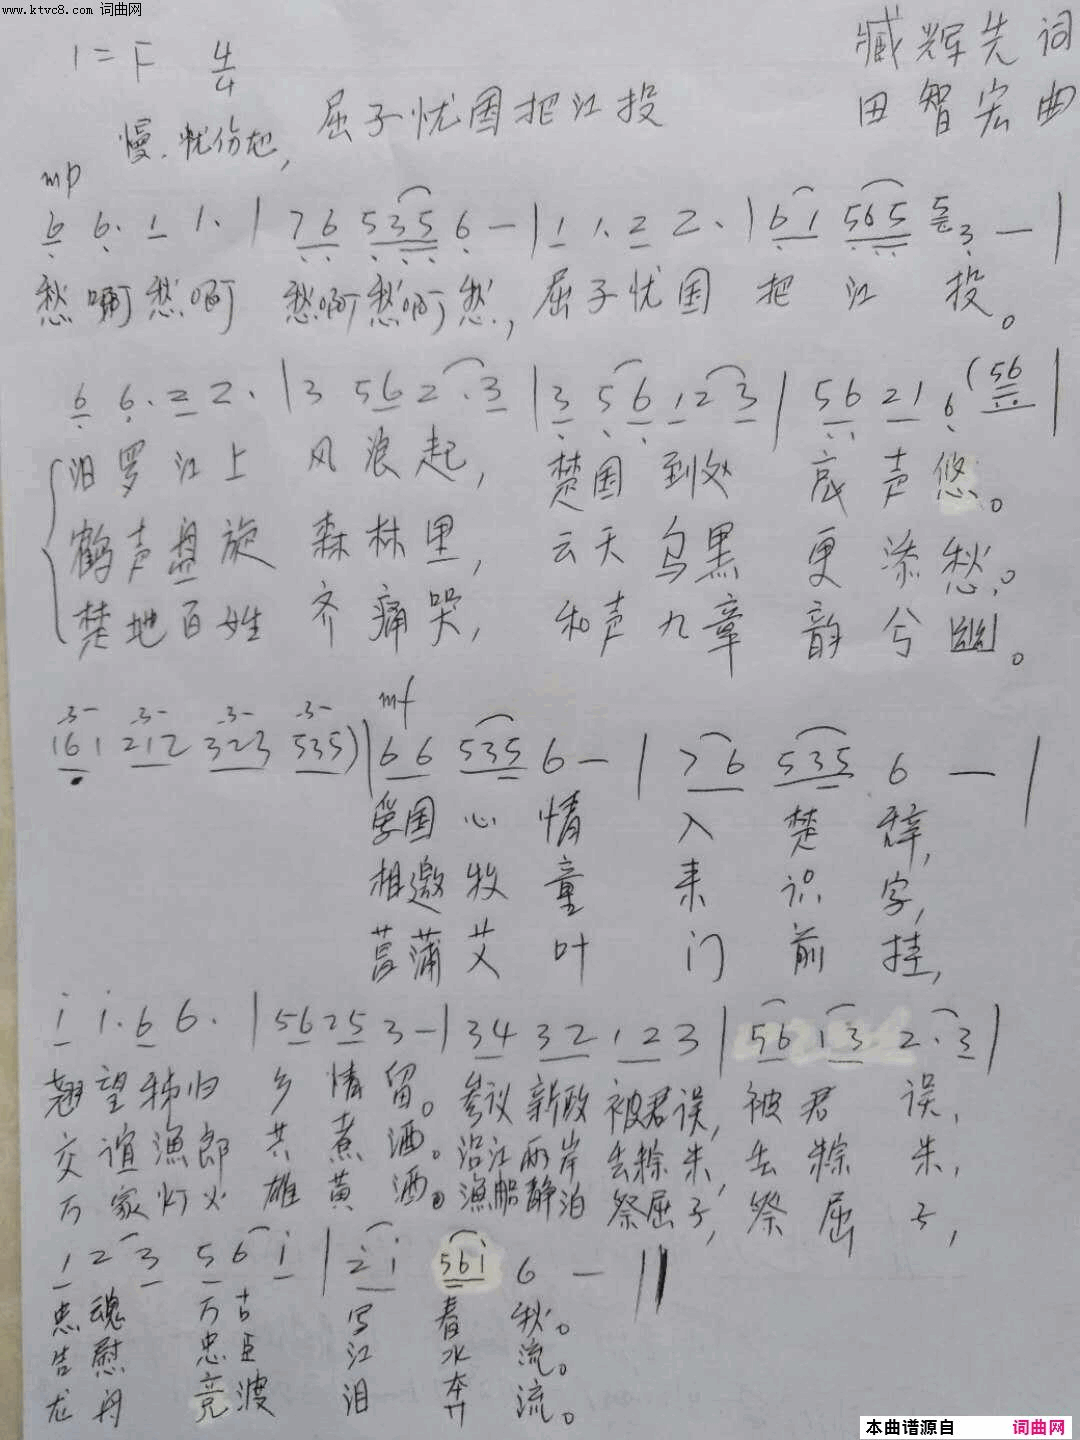 www.ktvc8.com 词曲网
1=F 4/4
臧辉先词
屈子忧国把江投
田智宏曲
慢.忧伤地,
mp
6 6. 1 1. | 7 6 5 3 5 6 — | 1 1. 2 2. | 6 1 5 6 5 5 3 — |
愁啊愁啊 愁啊愁啊愁, 屈子忧国 把江投。
6 6. 2 2. | 3 5 6 2. 3 | 3 5 6 1 2 3 | 5 6 2 1 6 (5 6 |
汨罗江上 风浪起, 楚国到处 哀声悠。
鹤声盘旋 森林里, 云天乌黑 更添愁。
楚地百姓 齐痛哭, 和声九章 韵兮幽。
mf
1 6 1 2 1 2 3 2 3 5 3 5) | 6 6 5 3 5 6 — | 7 6 5 3 5 6 — |
爱国心情 入楚辞,
相邀牧童 来识字,
菖蒲艾叶 门前挂,
i i. 6 6. | 5 6 2 5 3 — | 3 4 3 2 1 2 3 | 5 6 1 3 2. 3 |
翘望秭归 乡情留。 参议新政被君误, 被君误,
交谊渔郎 共煮酒。 沿江两岸去粽米, 去粽米,
万家灯火 雄黄酒。 渔船静泊祭屈子, 祭屈子,
1 2 3 5 6 i | 2 i 5 6 i 6 — ||
忠魂万古 写春秋。
告慰忠臣 江水流。
龙舟竞渡 汨奔流。
本曲谱源自 词曲网